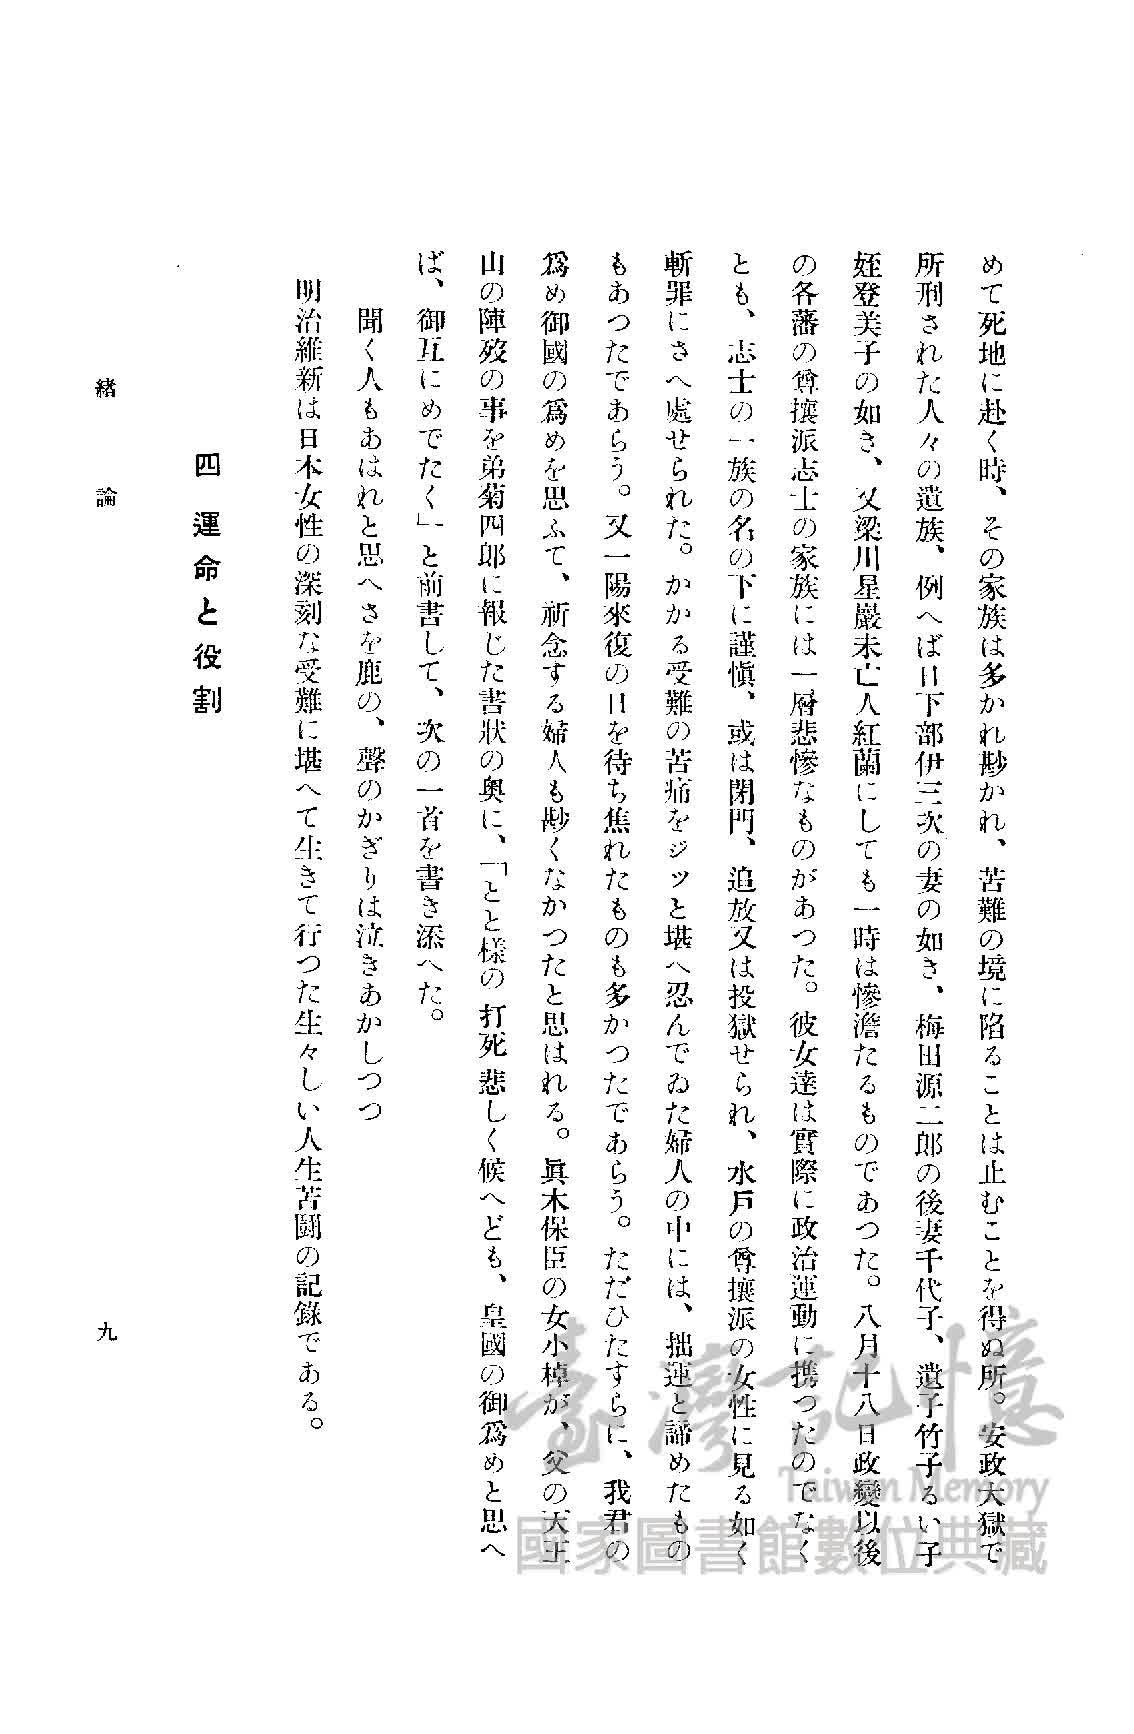 めて死地に赴く時、その家族は多かれ尠かれ、苦難の境に陷ることは止むことを得ぬ所。安政大獄で
所刑された人々の遺族、例へば日下部伊三次の妻の如き、梅田源二郎の後妻千代子、遺子竹子るい子
姪登美子の如き、又梁川星巖未亡人紅蘭にしても一時は慘澹たるものであつた。八月十八日政變以後
の各藩の尊攘派志士の家族には一層悲慘なものがあつた。彼女達は實際に政治運動に携つたのでなく
とも、志士の一族の名の下に謹愼、或は閉門、追放又は投獄せられ、水戸の尊攘派の女性に見る如く
斬罪にさへ處せられた。かかる受難の苦痛をジッと堪へ忍んでゐた婦人の中には、拙運と諦めたもの
もあつたであらう。又一陽來復の日を待ち焦れたものも多かつたであらう。ただひたすらに、我君の
爲め御國の爲めを思ふて、祈念する婦人も尠くなかつたと思はれる。眞木保臣の女小棹が、父の天王
山の陣歿の事を弟菊四郎に報じた書狀の奥に、「とと樣の打死悲しく候へども、皇國の御爲めと思へ
ば、御互にめでたく」と前書して、次の一首を書き添へた。
聞く人もあはれと思へさを鹿の、聲のかぎりは泣きあかしつつ
明治維新は日本女性の深刻な受難に堪へて生きて行つた生々しい人生苦鬪の記錄である。
四 運命と役割
緖論
九
臺灣記憶
Taiwan Memory
國家圖書館數位典藏